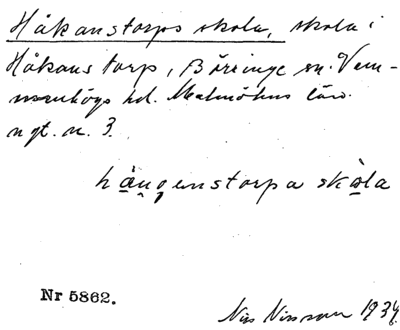 Håkanstorps skola, skola i
Håkanstorp, Börringe sn. Vem-
menhögs hd. Malmöhus län.
ngt. n. 3.
hångenstorpa skola
Nr 5862.
Nils Nilsson 1934.